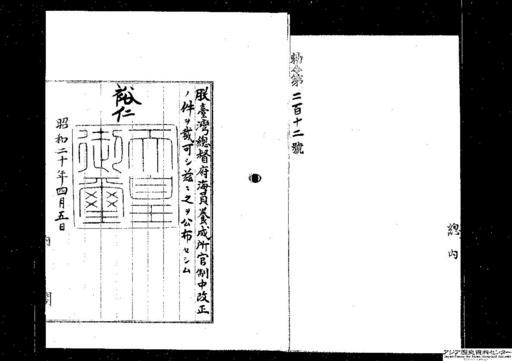 勅令第二百十二號
總
内
朕臺灣總督府海員養成所官制中改正
ノ件ヲ裁可シ茲ニ之ヲ公布セシム
裕仁
天皇御璽
昭和二十年四月五日
内閣
アジア歴史資料センター